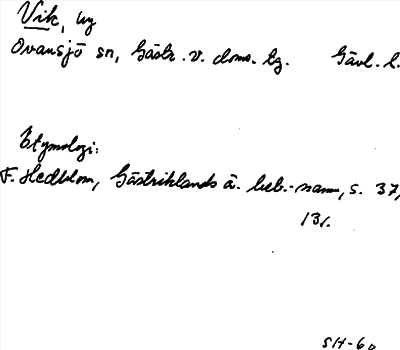 Vik, by
Ovansjö sn, Gästr. v. doms. tg. Gävl. l.
Etymologi:
F. Hedblom, Gästriklands ä. beb.-namn, s. 37,
131.
SH-60